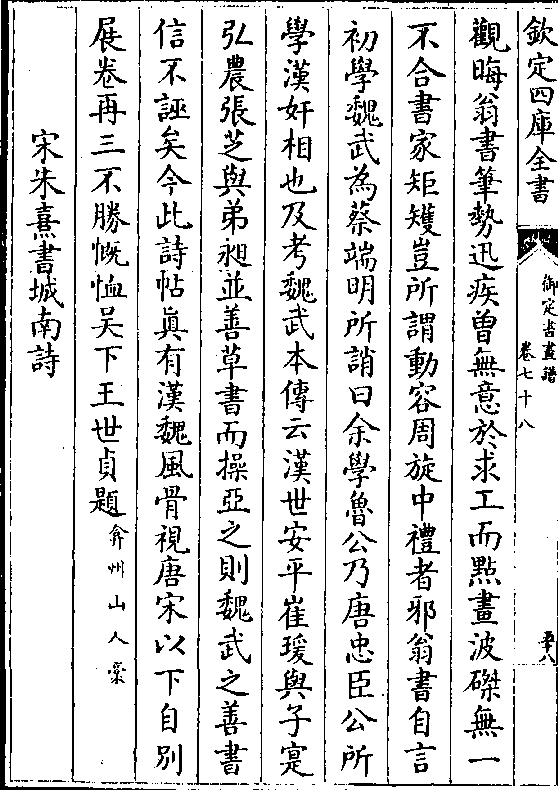 欽定四庫全書
御定書畫譜
卷七十八
觀晦翁書筆勢迅疾曾無意於求工而點畫波磔無一
不合書家矩矱豈所謂動容周旋中禮者邪翁書自言
初學魏武為蔡端明所誚曰余學魯公乃唐忠臣公所
學漢奸相也及考魏武本傳云漢世安平崔瑗與子寔
弘農張芝與弟昶並善草書而操亞之則魏武之善書
信不誣矣今此詩帖真有漢魏風骨視唐宋以下自別
展卷再三不勝慨恤吴下王世貞題弇州山人槀
宋朱熹書城南詩